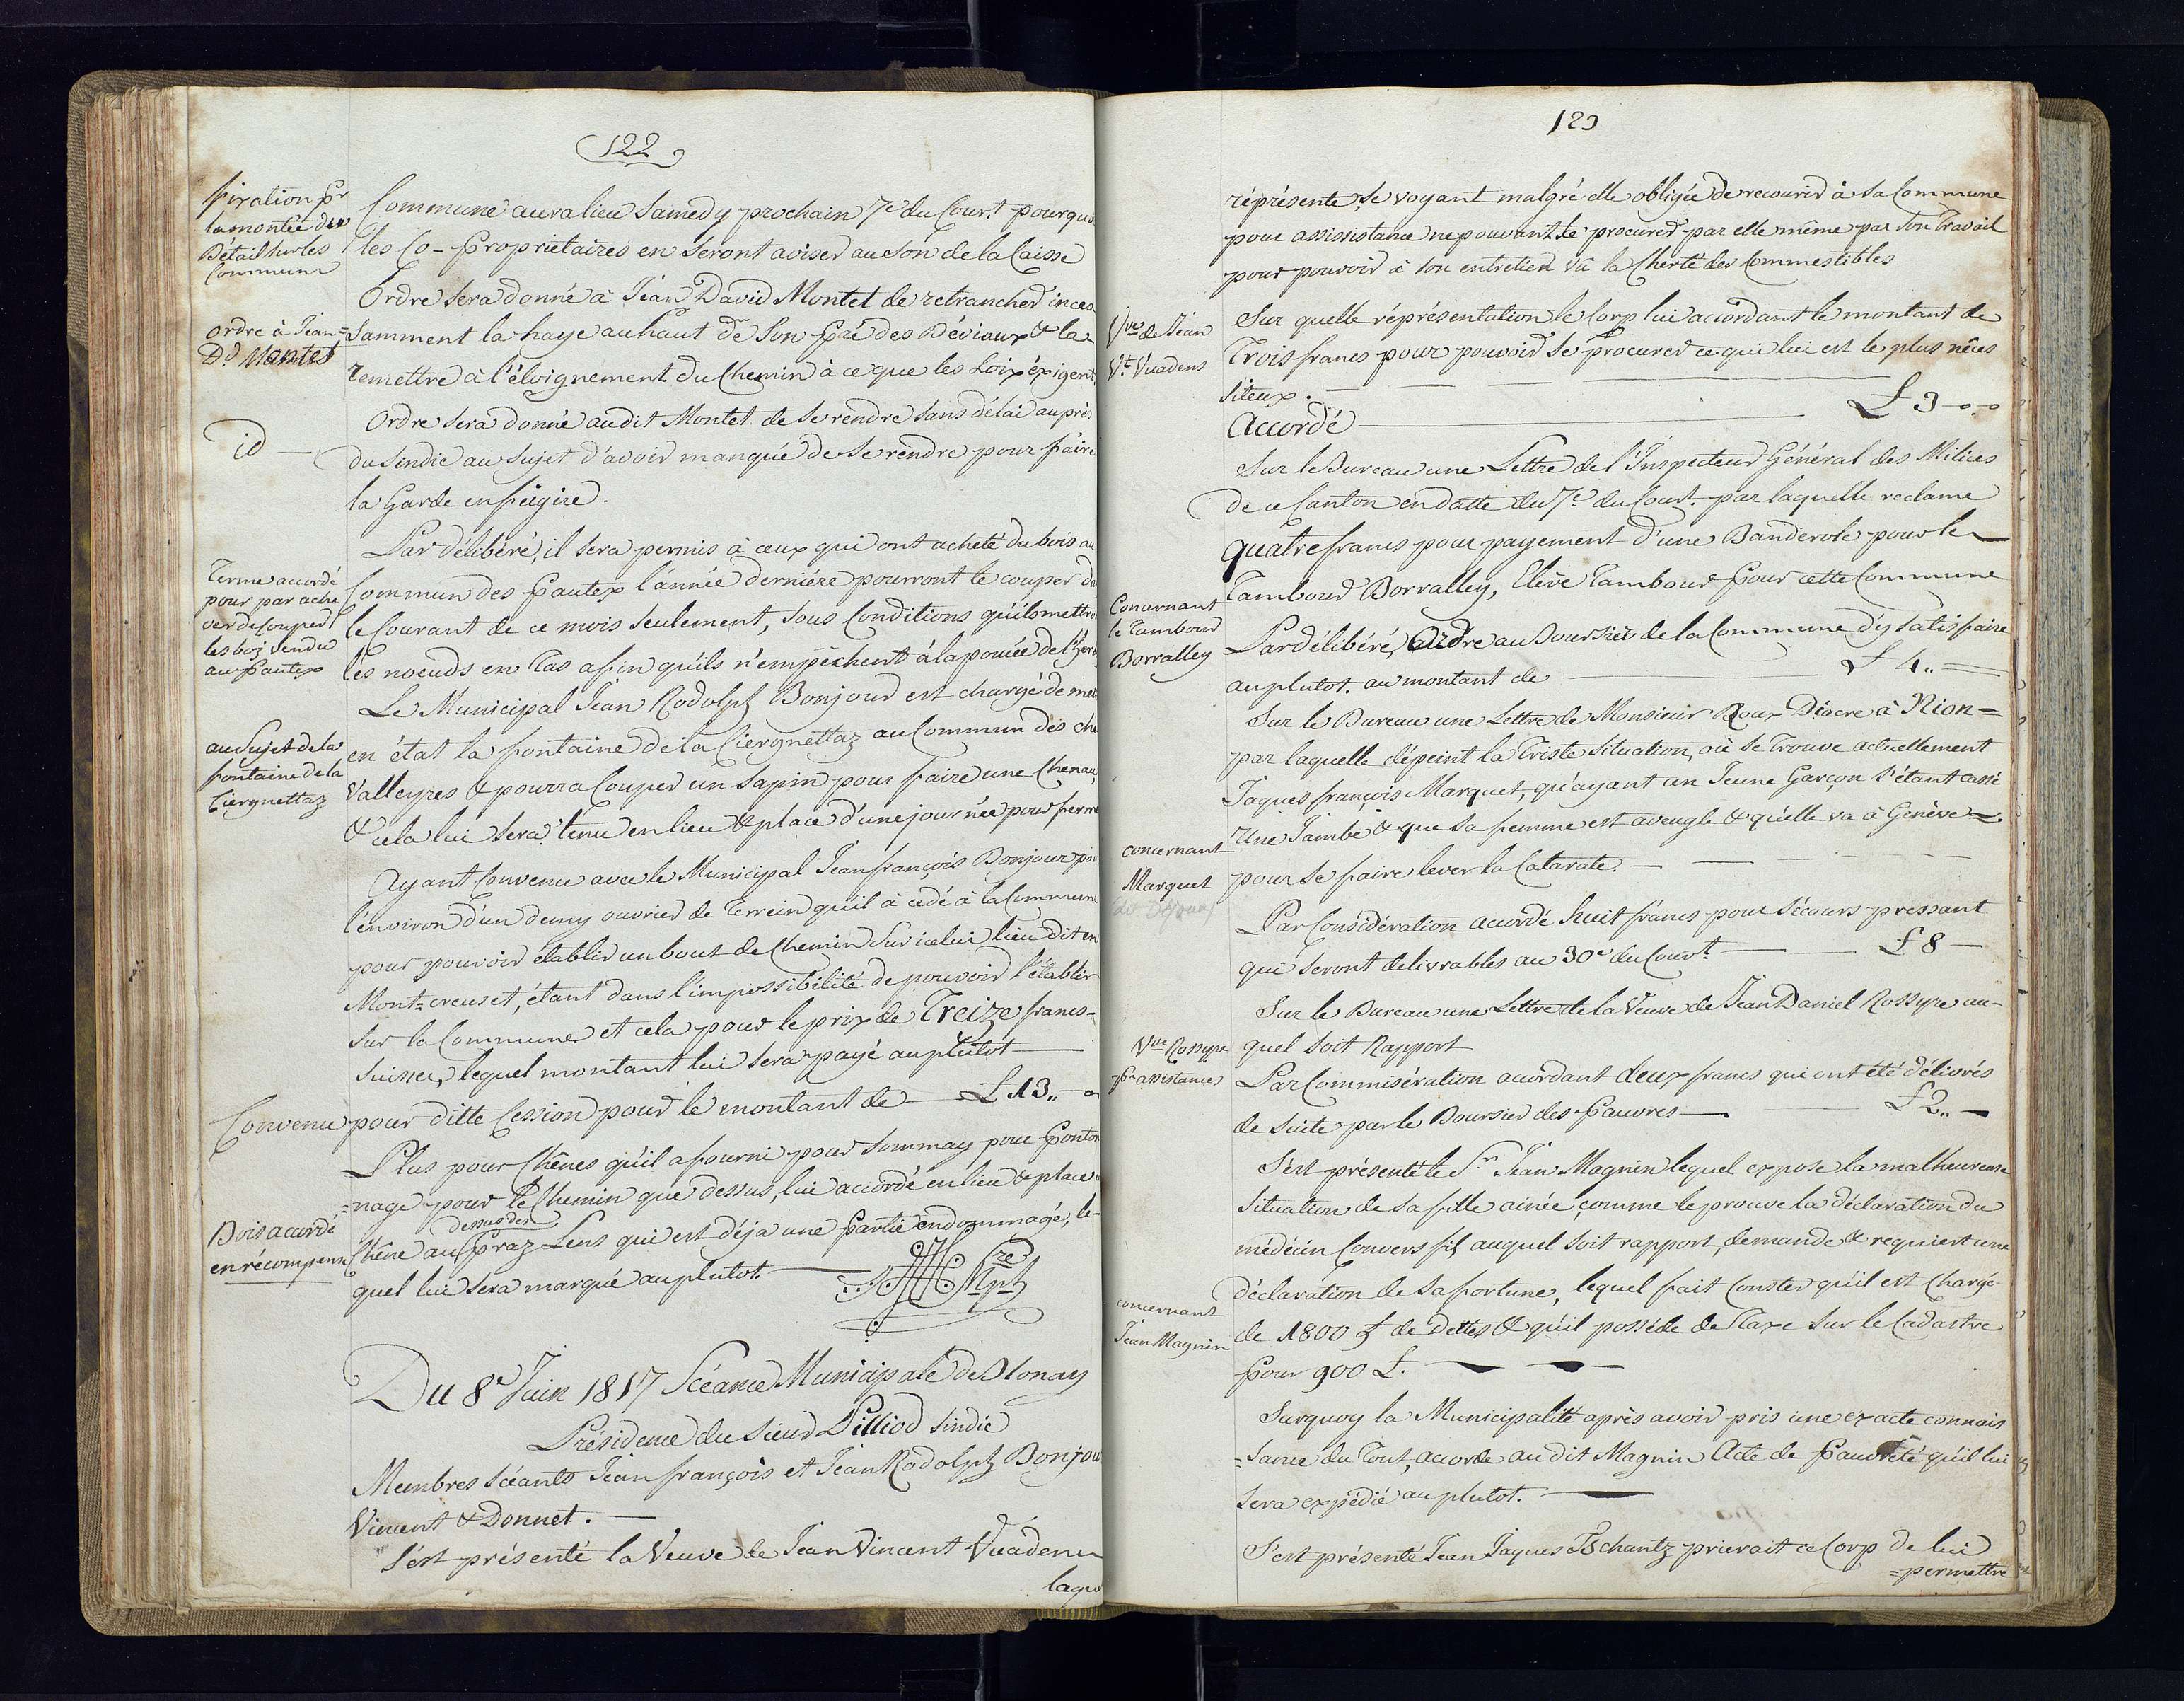 122
Commune aura lieu Samedy prochain 7e du Cour.t pourquoi
les Co-Propriétaires en seront avisés au Son de la Caisse
Ordre sera donné à Jean David Montet de retrancher inces
samment la haye au haut de Son pré des Déviaux & la
remettre à l'éloignement du Chemin à ce que les Loix éxigent
Ordre sera donné audit Montet de se rendre sans délai auprès
du Sindic au Sujet d'avoir manqué de se rendre pour faire
la Garde en
Par Délibéré, il sera permis à ceux qui ont acheté du bois au
Commun des Pautex l'année dernière pourront le couper d
le Courant de ce mois seulement, sous Conditions qu'ils mettro
les noeuds en Tas afin qu'ils n'empêchent à la pouée de l'her
Le Municipal Jean Rodolph Bonjour est chargé de met
en état la fontaine de la Ciergnettaz au Commun des che
Valleyres & pourra Couper un Sapin pour faire une Chenau,
& cela lui sera tenu en lieu & place d'une journée pour ferme
Ayant Convenu avec le Municipal Jean françois Bonjour pour
l'énviron d'un demy ouvrier de Terrein qu'il à cédé à la Commune
pour pouvoir établir un bout de Chemin Sur icelui lieu dit en
Mont=creuset, étant dans l'impossibilité de pouvoir l'établir
sur la Commune et cela pour le prix de Treize francs-
Suisses, lequel montant lui sera payé au plutôt —
Convenu pour ditte Cession pour le montant de — £ 13,,—
Plus pour Chênes qu'il a fourni pour Sommay pour Ponton
=nage pour le Chemin que dessus, lui accordé en lieu & place
dessus des
Chêne au Praz Lens qui est déja une Partie endommagé, le-
quel lui sera marqué au plutot. —
Du 8e Juin 1817 Scéance Municipale de Blonay
Présidence du Sieur Pilliod Sindic
Membres scéants Jean françois et Jean Rodolph Bonjou
Vincent & Donnet. —
S'ést présenté la Veuve de Jean Vincent Vuadens
laqu
piration pr
la montée du
Bétail sur les
Commune
Ordre à Jean=
Dd Montet
id —
Terme accordé
pour par ache
ver de couper
les bois vendu
au Pautex
au Sujet de la
fontaine de la
Ciergnettaz
Bois accordé
en récompense
123
réprésente, se voyant malgré elle obligée de recourir à sa Commune
pour assisistance ne pouvant se procurer par elle même par Son Travail
pour pouvoir à son entretien vû la Cherté des Commestibles
Sur quelle réprésentation le Corp lui accordant le montant de
Trois francs pour pouvoir se procurer ce qui lui est le plus néces
siteux. —
Accordé — £ 3-"-"
Sur le Bureau une Lettre de l'Inspecteur Général des Milices
de ce Canton en datte du 7e du Court. par laquelle reclame
quatre francs pour payement d'une Banderole pour le
Tambour Borralley, Elève Tambour pour cette Commune
Par délibéré, Ordre au Boursier de la Commune d'y satisfaire
au plutot. au montant de — £ 4.. =
Sur le Bureau une Lettre de Monsieur Roux Diacre à Nion=
par laquelle dépeint la Triste Situation, où se Trouve actuellement
Jaques françois Marquet, qu'ayant un Jeune Garçon S'étant cassé
Une Jambe & que Sa femme est aveugle & qu'elle va à Genève =
pour se faire lever la Catarate. —
Par Considération acordé huit francs pour Sécours pressant
qui seront delivrables au 30e du Court — £ 8 —
Sur le Bureau une Lettre de la Veuve de Jean Daniel Rossyre au-
quel soit Rapport
Par Commisération acordant deux francs qui ont été délivrés
de suite par le Boursier des Pauvres — £ 2.. —
S'ést présenté le Sr. Jean Magnin lequel expose la malheureuse
Situation de Sa fille ainée, comme le prouve la déclaration du
médecin Convers fils auquel soit rapport, demande & requiert une
déclaration de Sa fortune, lequel fait Conster qu'il est Chargé
de 1800 £ de Dettes & qu'il posséde de Taxe Sur le Cadastre
pour 900 £. —
Surquoy la Municipalité après avoir pris une exacte connais
=sance du Tout, accorde audit Magnin Acte de Pauvreté qu'il lui
sera expédié au plutot. —
S'est présenté Jean Jaques Tschantz prierait ce Corp de lui
=permettre
Vve de Jean
Vt. Vuadens
Concernant
le Tambour
Borralley
concernant
Marquet
Vve Rossyre
pr assistances
concernant
Jean Magnin